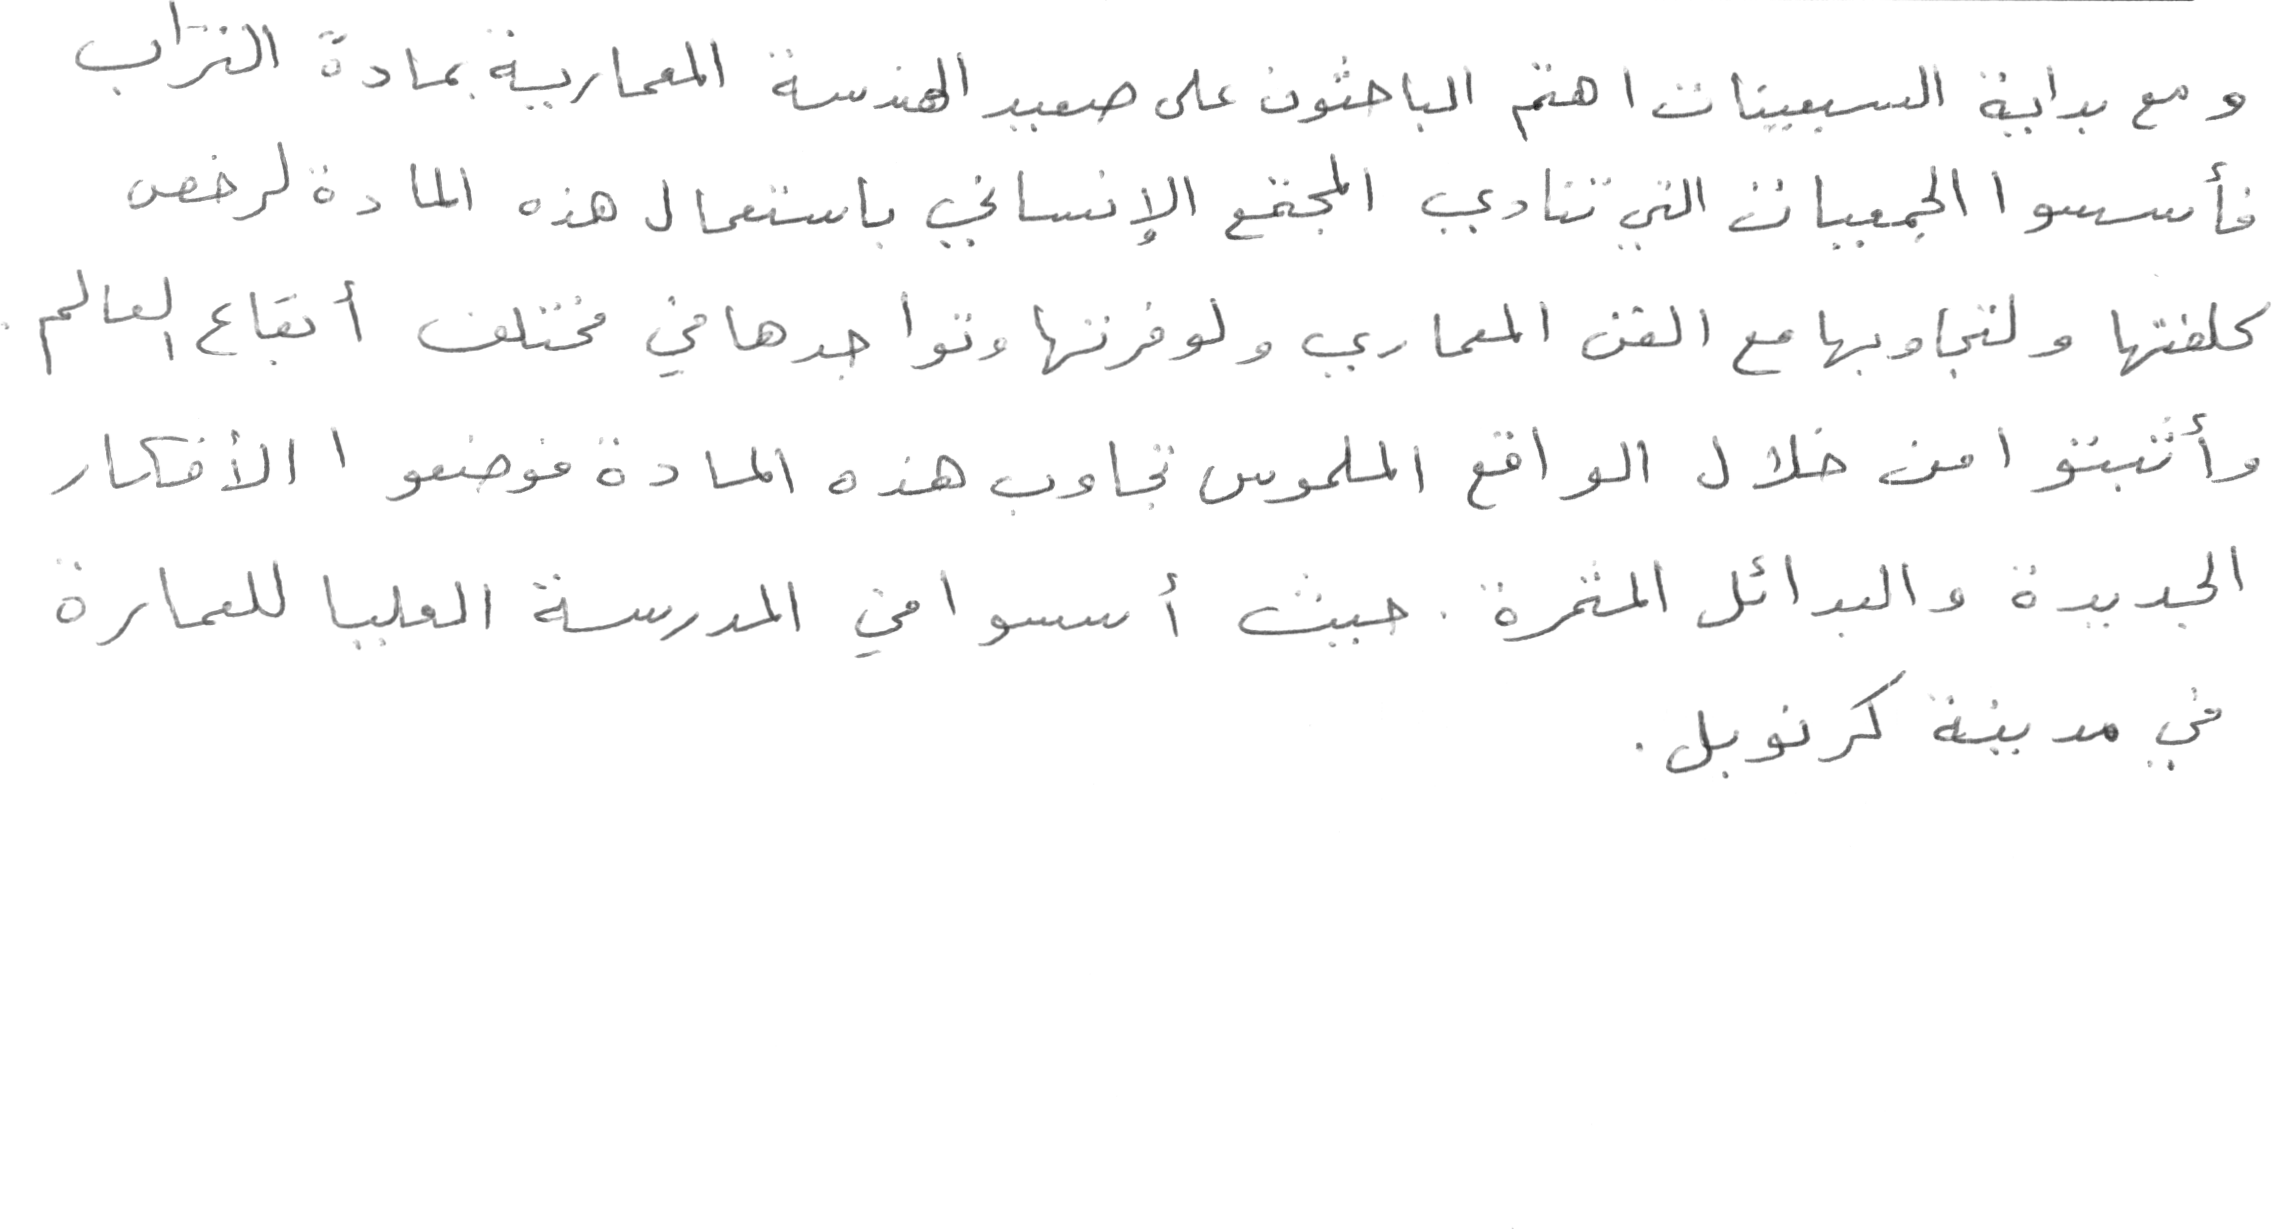 ومع بداية السبعينات اهتم الباحثون على صعيد الهندسة المعمارية بمادة التراب
فأسسوا الجمعيات التي تنادي المجتمع الإنساني باستعمال هذه المادة لرخص
كلفتها ولتجاوبها مع الفن المعماري ولوفرتها وتواجدها في مختلف أبقاع العالم.
وأثبتوا من خلال الواقع الملموس تجاوب هذه المادة فوضعوا الأفكار
الجديدة والبدائل المثمرة. حيث أسسوا في المدرسة العليا للعمارة
في مدينة كرنوبل.